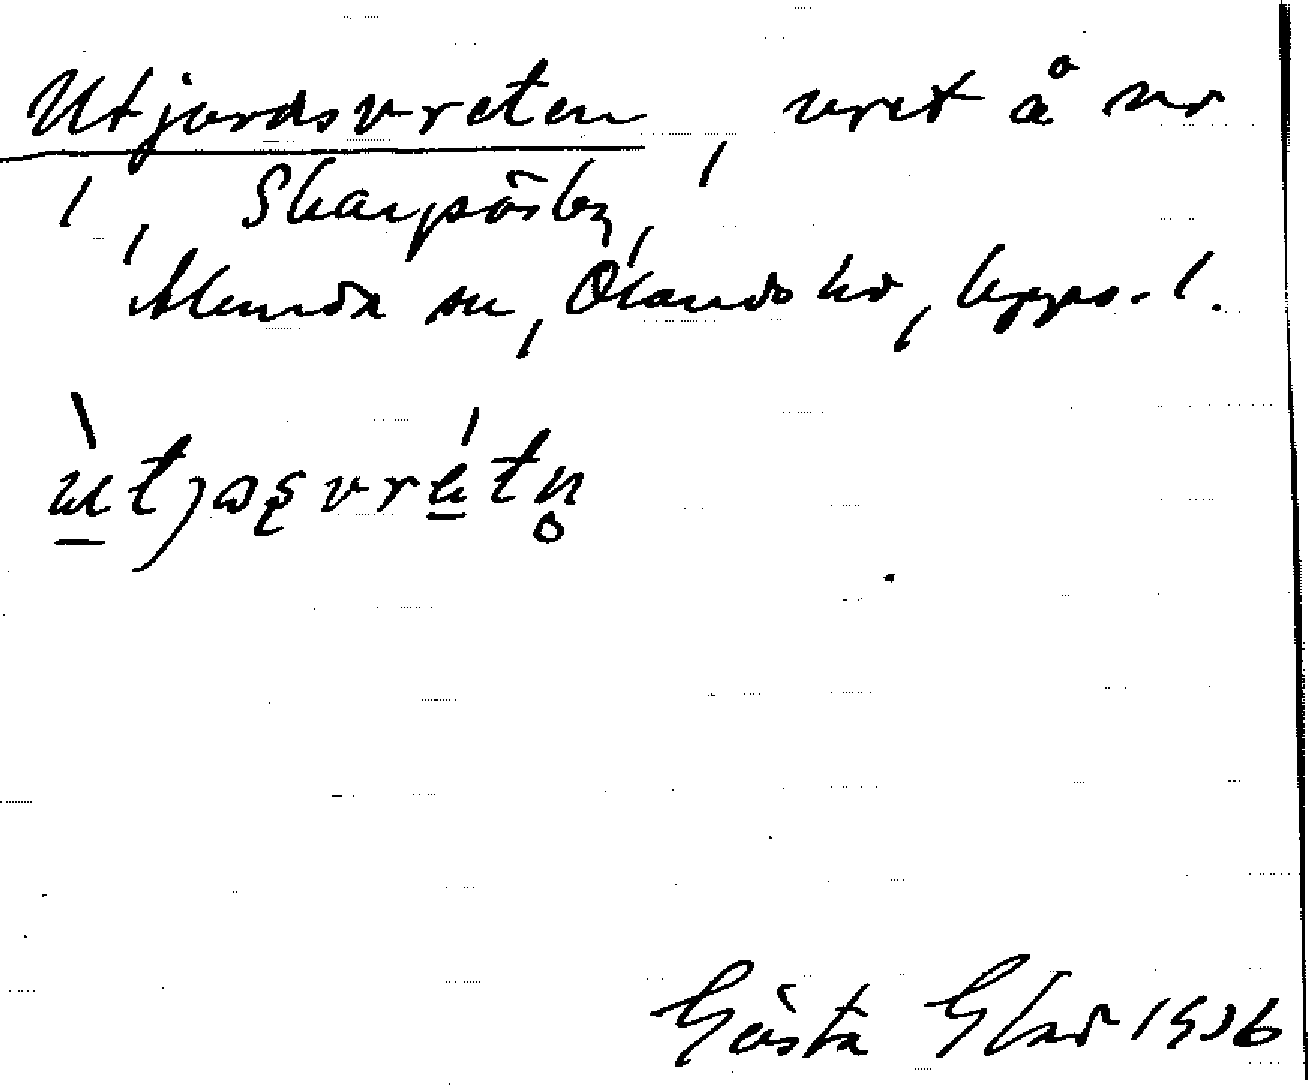 Utjordsvreten, vret å nr
1, Skarpösby,
Alunda sn, Ölands hd, Upps. l.
ùtjɷșvrétn̥
Gösta Glad 1936